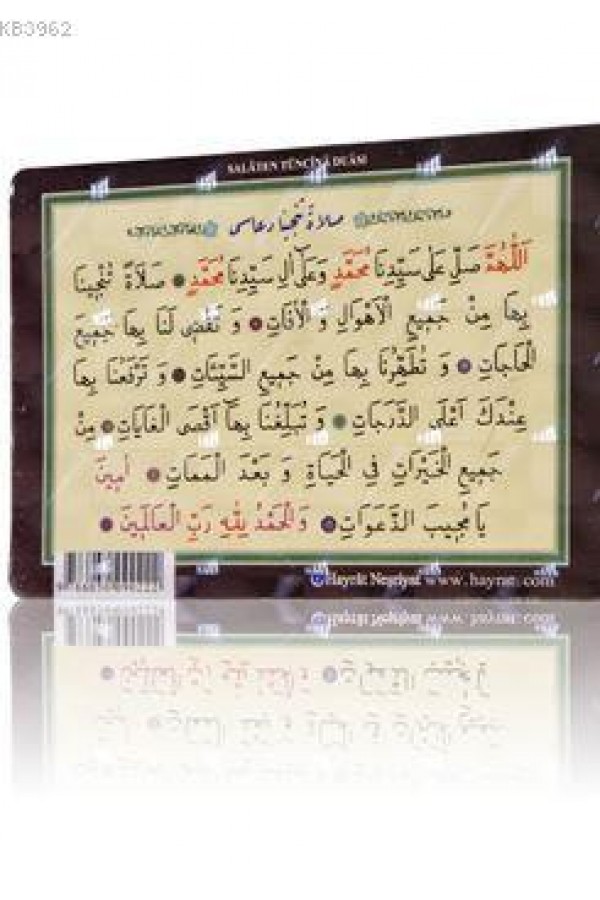 KB3962
SALÂTEN TÜNCÎNÂ DUÂSI
اَللّٰهُمَّ صَلِّ عَلٰى سَيِّدِنَا مُحَمَّدٍ وَعَلٰٓى اٰلِ سَيِّدِنَا مُحَمَّدٍ ۝ صَلَاةً تُنْجِينَا
بِهَا مِنْ جَمِيعِ الْاَهْوَالِ وَ الْاٰفَاتِ ۝ وَ تَقْضِى لَنَا بِهَا جَمِيعَ
الْحَاجَاتِ ۝ وَ تُطَهِّرُنَا بِهَا مِنْ جَمِيعِ السَّيِّئَاتِ ۝ وَ تَرْفَعُنَا بِهَا
عِنْدَكَ اَعْلَى الدَّرَجَاتِ ۝ وَ تُبَلِّغُنَا بِهَٓا اَقْصَى الْغَايَاتِ ۝ مِنْ
جَمِيعِ الْخَيْرَاتِ فِى الْحَيَاةِ وَ بَعْدَ الْمَمَاتِ ۝ اٰمِينَ
يَا مُجِيبَ الدَّعَوَاتِ ۝ وَالْحَمْدُ لِلّٰهِ رَبِّ الْعَالَمِينَ ۝
Hayrât Neşriyat www.hayrat.com